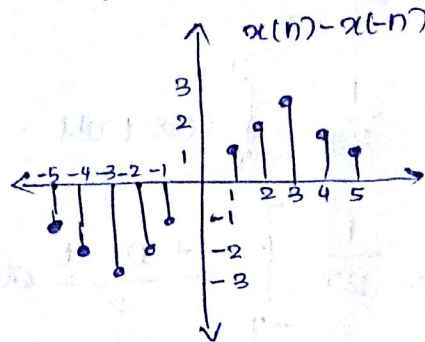 x(n)-x(-n)
3
2
1
-5 -4 -3 -2 -1
1 2 3 4 5
-1
-2
-3